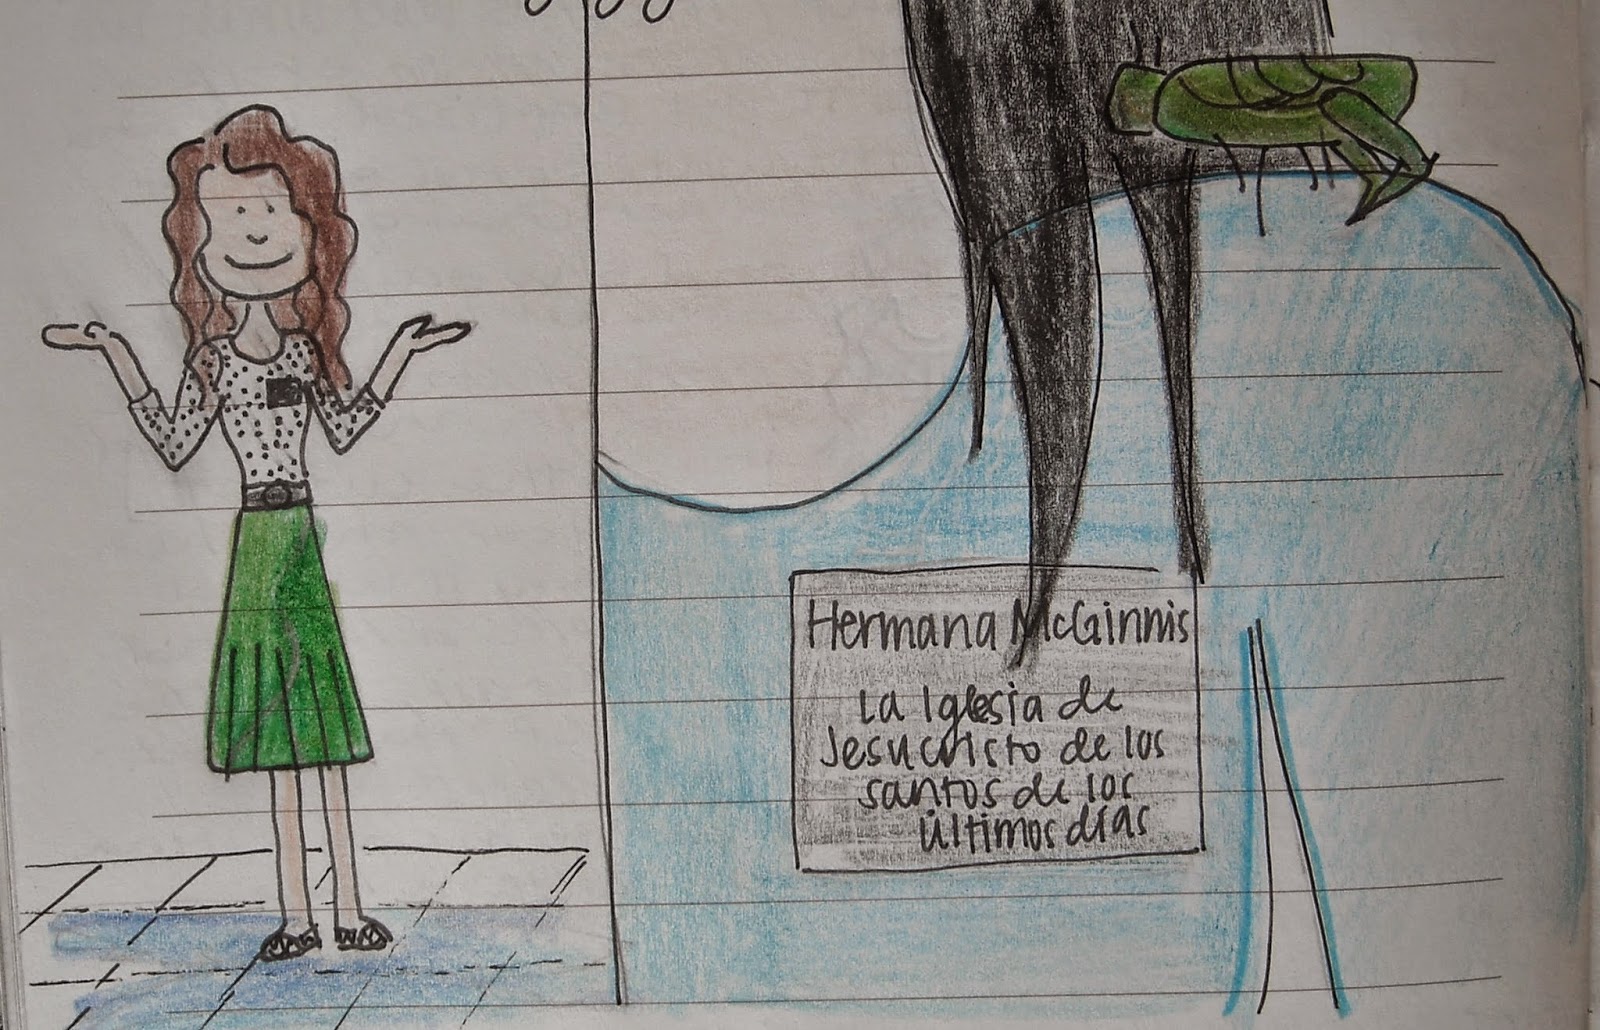 Hermana McGinnis
La Iglesia de
Jesucristo de los
santos de los
Últimos días